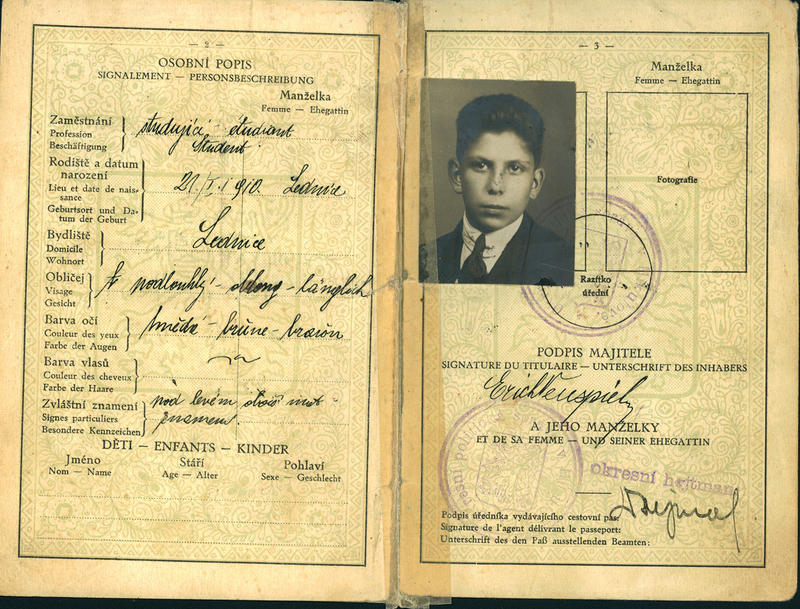 — 2 —
OSOBNÍ POPIS
SIGNALEMENT — PERSONSBESCHREIBUNG
Manželka
Femme — Ehegattin
Zaměstnání
Profession
Beschäftigung
studující - étudiant
Student
Rodiště a datum
narození
Lieu et date de nais-
sance
Geburtsort und Da-
tum der Geburt
21./I. 1910. Lednice
Bydliště
Domicile
Wohnort
Lednice
Obličej
Visage
Gesicht
podlouhlý - oblong - länglich
Barva očí
Couleur des yeux
Farbe der Augen
hnědé - brune - braun
Barva vlasů
Couleur des cheveux
Farbe der Haare
Zvláštní znamení
Signes particuliers
Besondere Kennzeichen
pod levém
znamení
DĚTI — ENFANTS — KINDER
Jméno
Nom — Name
Stáří
Age — Alter
Pohlaví
Sexe — Geschlecht
— 3 —
Manželka
Femme — Ehegattin
Fotografie
Razítko
úřední
PODPIS MAJITELE
SIGNATURE DU TITULAIRE — UNTERSCHRIFT DES INHABERS
Erich
A JEHO MANŽELKY
ET DE SA FEMME — UND SEINER EHEGATTIN
okresní hejtman
Podpis úředníka vydávajícího cestovní pas:
Signature de l'agent délivrant le passeport:
Unterschrift des den Paß ausstellenden Beamten: